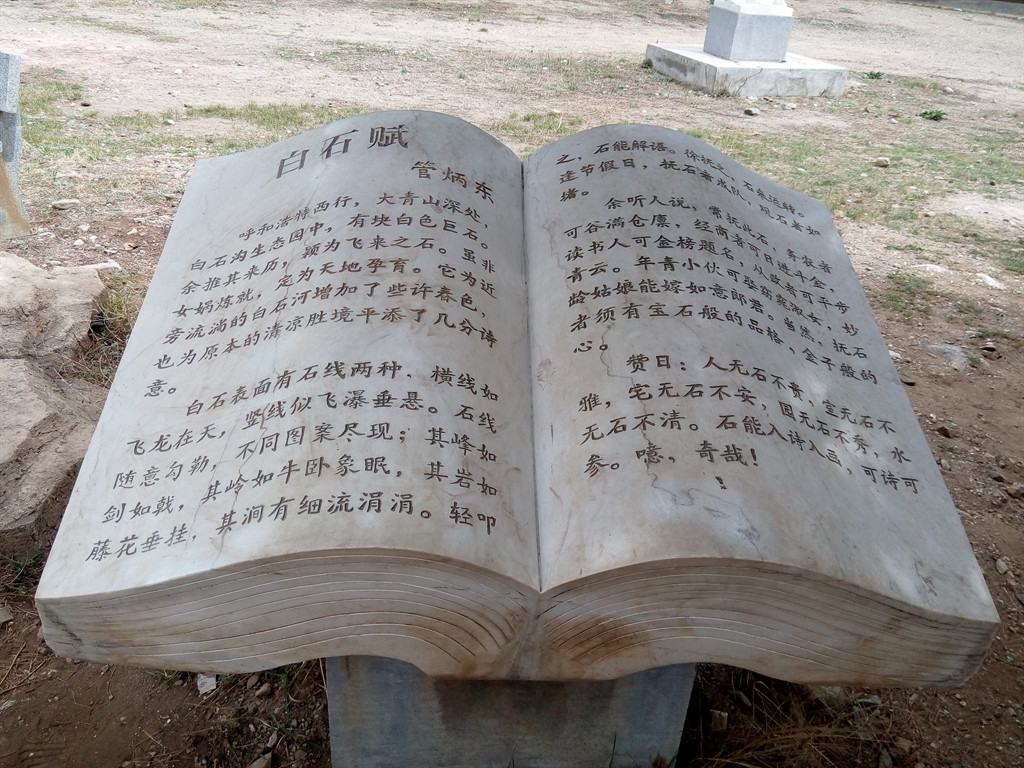 白石赋
管炳东
呼和浩特西行，大青山深处，
白石沟生态园中，有块白色巨石。
余推其来历，颖为飞来之石。虽非
女娲炼就，定为天地孕育。它为近
旁流淌的白石河增加了些许春色，
也为原本的清凉胜境平添了几分诗
意。
白石表面有石线两种，横线如
飞龙在天，竖线似飞瀑垂悬。石线
随意勾勒，不同图案尽现；其峰如
剑如戟，其岭如牛卧象眠，其岩如
藤花垂挂，其涧有细流涓涓。轻叩
之，石能解语。徐抚之，石来运转。
逢节假日，抚石者成队，观石者如
堵。
余听人说，常抚此石，务农者
可谷满仓廪，经商者可日进斗金，
读书人可金榜题名，从政者可平步
青云。年青小伙可娶窈窕淑女，妙
龄姑娘能嫁如意郎君。当然，抚石
者须有宝石般的品格，金子般的
心。
赞曰：人无石不贵，室无石不
雅，宅无石不安，园无石不秀，水
无石不清。石能入诗入画，可诗可
参。噫，奇哉！